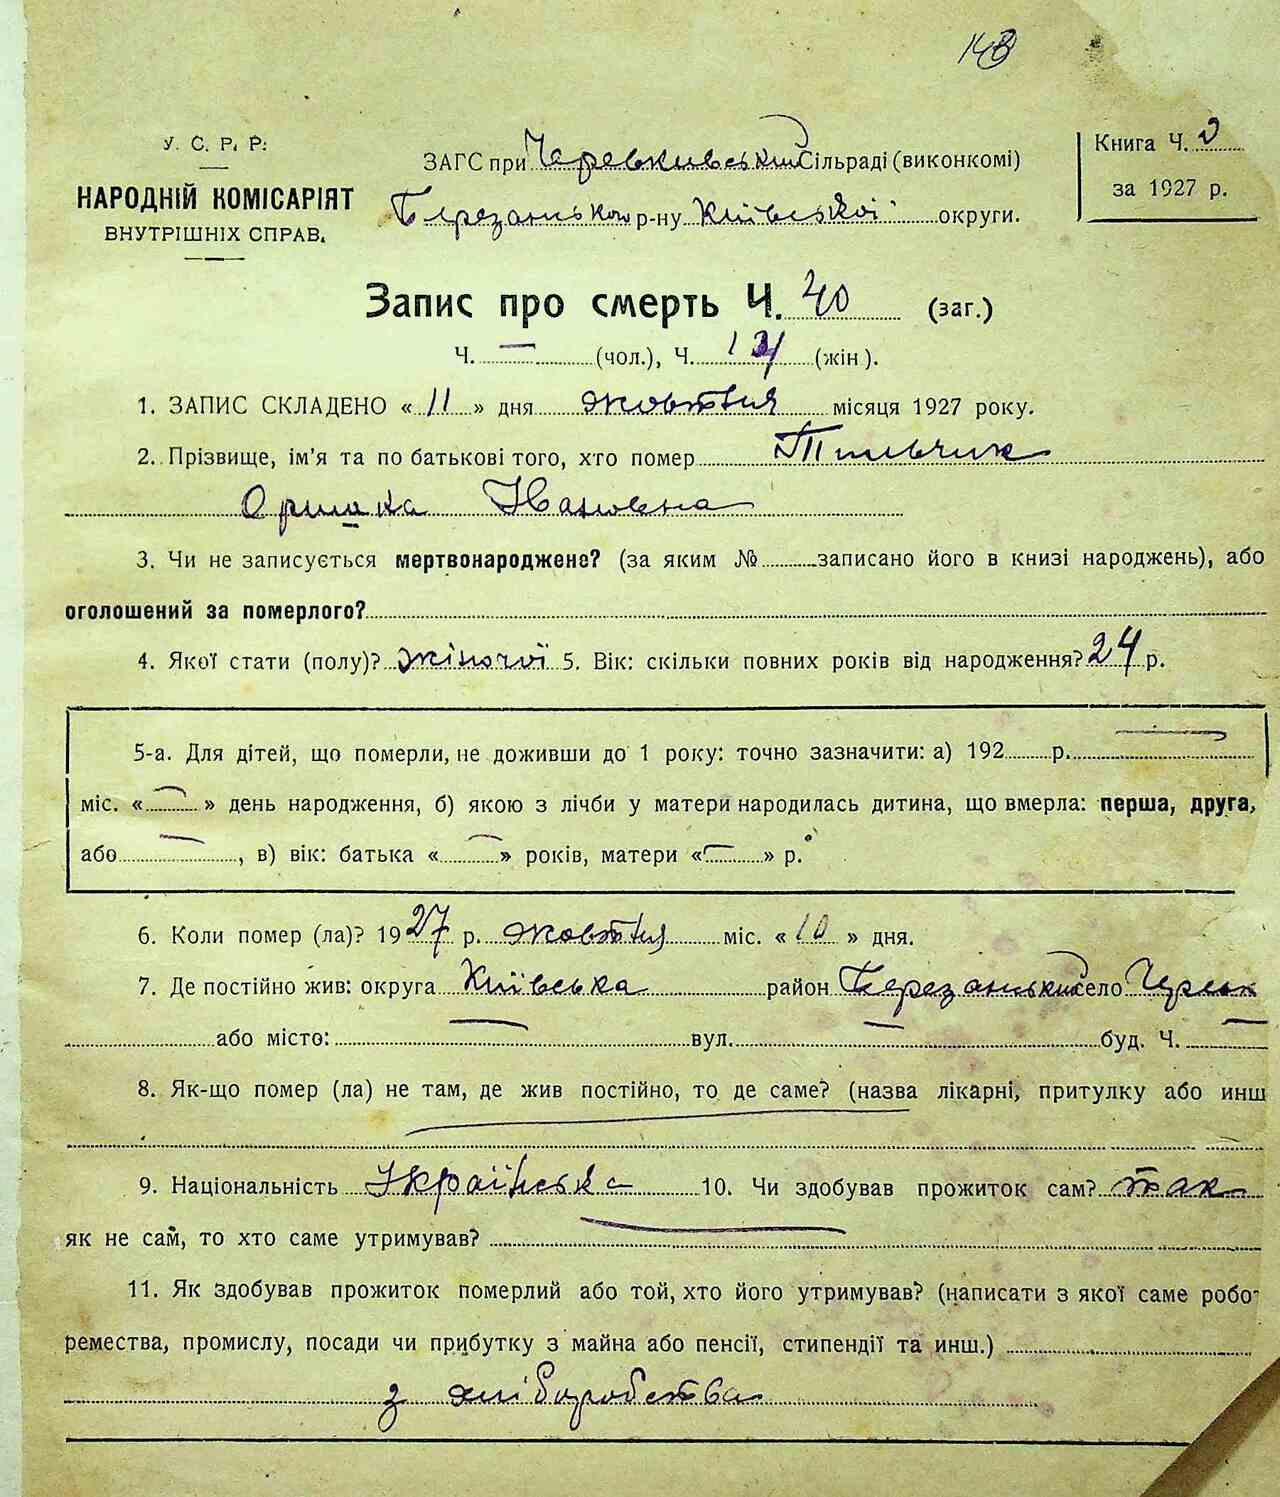 143
У. С. Р. Р.
НАРОДНІЙ КОМІСАРІЯТ
ВНУТРІШНІХ СПРАВ.
ЗАГС при Черевківській Сільраді (виконкомі)
Березанського р-ну Київської округи.
Книга Ч.
за 1927 р.
Запис про смерть Ч. 40 (заг.)
Ч. — (чол.), Ч. (жін).
1. ЗАПИС СКЛАДЕНО « 11 » дня жовтня місяця 1927 року.
2. Прізвище, ім'я та по батькові того, хто помер Тільчик
Оришка Івановна
3. Чи не записується мертвонароджене? (за яким № записано його в книзі народжень), або
оголошений за померлого?
4. Якої стати (полу)? жіночої 5. Вік: скільки повних років від народження? 24 р.
5-а. Для дітей, що померли, не доживши до 1 року: точно зазначити: а) 192 р. —
міс. « — » день народження, б) якою з лічби у матери народилась дитина, що вмерла: перша, друга,
або — , в) вік: батька « — » років, матери « — » р.
6. Коли помер (ла)? 1927 р. жовтня міс. « 10 » дня.
7. Де постійно жив: округа Київська район Березанський село
або місто: — вул. — буд. Ч. —
8. Як-що помер (ла) не там, де жив постійно, то де саме? (назва лікарні, притулку або инш
9. Національність Українська 10. Чи здобував прожиток сам? так
як не сам, то хто саме утримував? —
11. Як здобував прожиток померлий або той, хто його утримував? (написати з якої саме робо-
ремества, промислу, посади чи прибутку з майна або пенсії, стипендії та инш.)
з хліборобства